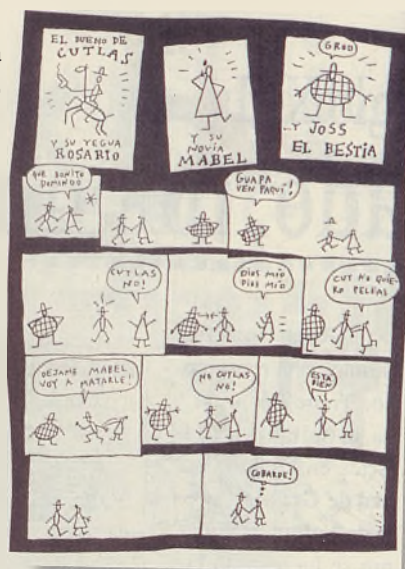 EL BUENO DE
CUTLAS
Y SU YEGUA
ROSARIO
Y SU
NOVIA
MABEL
GROO
..Y JOSS
EL BESTIA
QUE BONITO
DOMINGO
GUAPA
VEN PAQUI!
CUTLAS
NO!
DIOS MIO
DIOS MIO
CUT NO QUIE-
RO PELEAS
DEJAME MABEL
VOY A MATARLE!
NO CUTLAS
NO!
ESTA
BIEN
COBARDE!